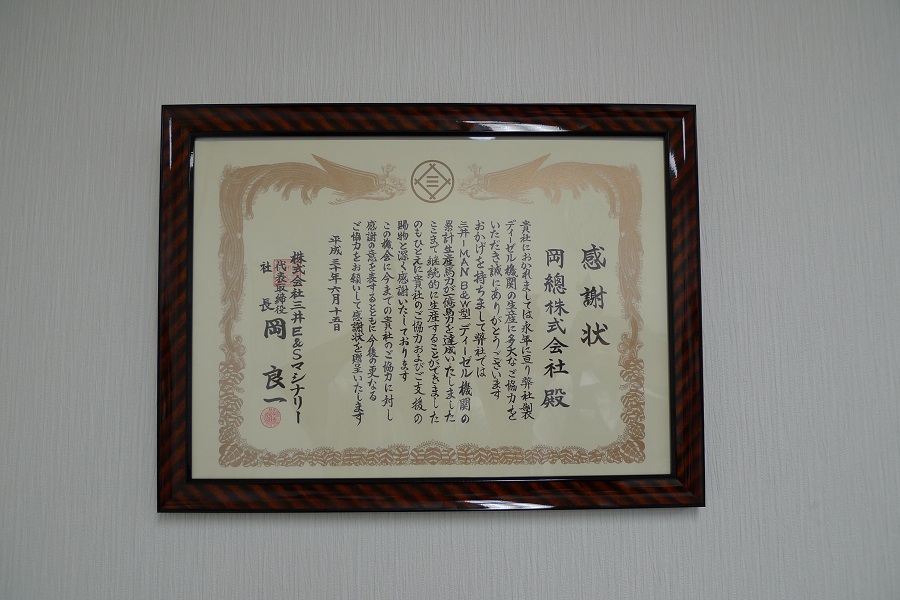 感謝状
岡總株式会社 殿
貴社におかれましては永年に亘り弊社製
ディーゼル機関の生産に多大なご協力を
いただき誠にありがとうございます
おかげを持ちまして弊社では
三井-MAN B&W型 ディーゼル機関の
累計生産馬力が一億馬力を達成いたしました
ここまで継続的に生産することができました
のもひとえに貴社のご協力およびご支援の
賜物と深く感謝いたしております
この機会に今までの貴社のご協力に対し
感謝の意を表するとともに今後の更なる
ご協力をお願いして感謝状を贈呈いたします
平成三十年六月十五日
株式会社三井E&Sマシナリー
代表取締役
社長 岡 良一